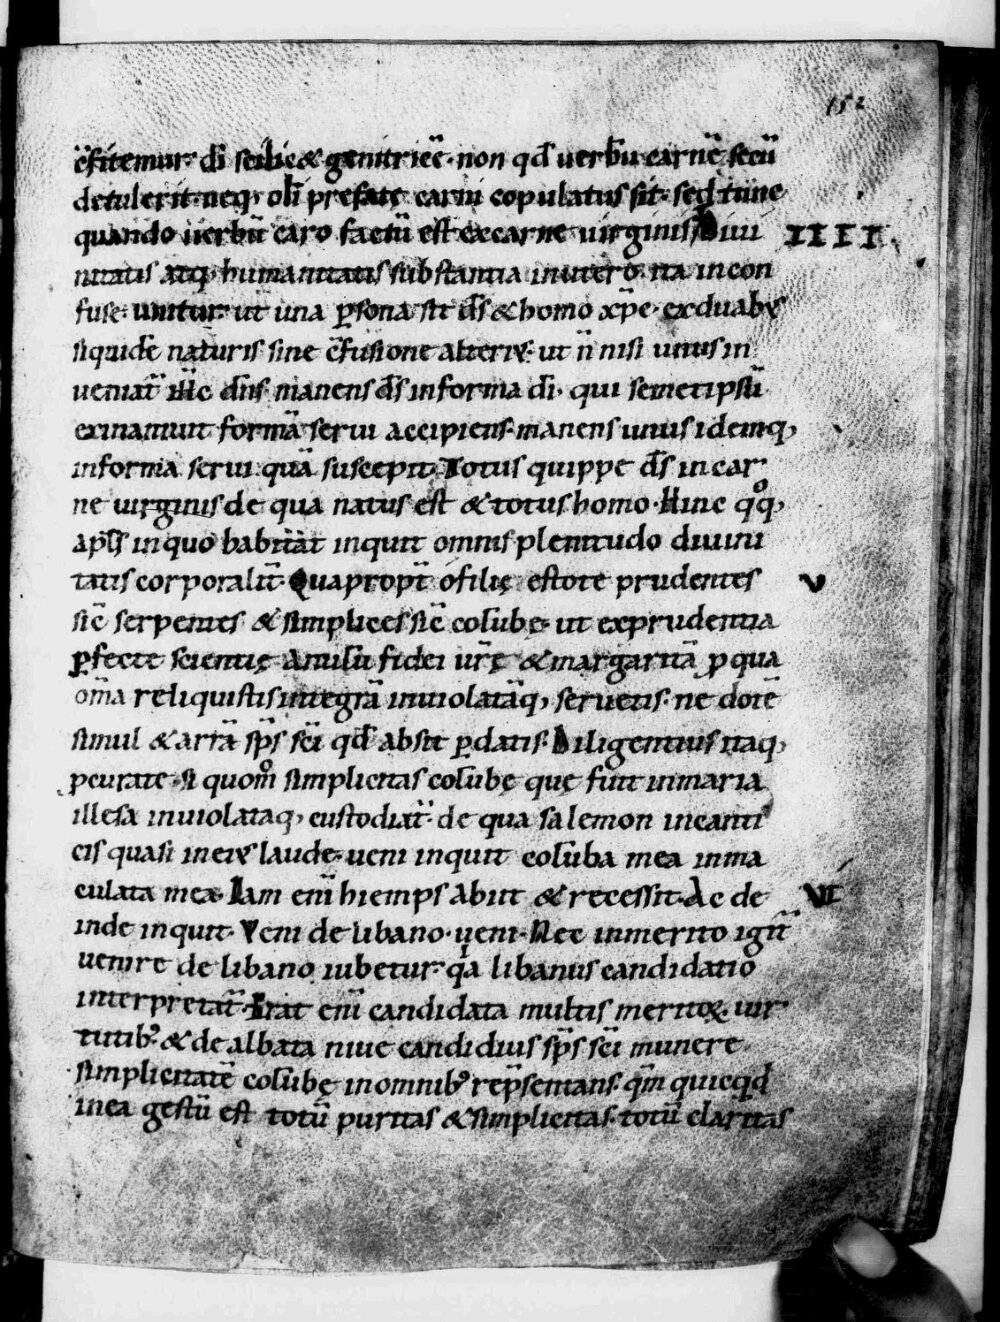 152
c̄fitemur· dī scilic& genitricē· non qđ uerbū carnē secū
detulerit· neq; oli prefatę carni copulatus sit· sed tunc
quando uerbū caro factū est ex carne uirginis· Diui IIII
nitatis atq; humanitatis substantia in utero ita incon
fuse· unitur· ut una ꝑsona sit dš & homo xp̄c· ex duabꝰ
siquidē naturis sine c̄fusione alteriꝰ· ut n̄ nisi unus in
ueniat̄ ill̄e dn̄s manens dš in forma dī· qui semetipsū
exinaniuit formā serui accipiens· manens unus idemq;
in forma serui quā suscepit· Totus quippe dš in car
ne uirginis de qua natus est & totus homo· Hinc qͦq;
apl̄s in quo habitat inquit omnis plenitudo diuini
tatis corporalit̄· Quapropt̄ ó filię estote prudentes V
sic̄ serpentes & simplices sic̄ colūbę· ut ex prudentia
ꝑfecte scientię anulū fidei ur̄ę & margaritā ꝓ qua
om̄a reliquistis integrā inuiolatāq; seruetis· ne dotē
simul & arrā sp̄s sc̄i qđ absit ꝑdatis· Diligentius itaq;
ꝓcurate· si quom̊ simplicitas colūbę quę fuit in maria
illesa inuiolataq; custodiat̄· de qua salemon in canti
cis quasi in eiꝰ laude· ueni inquit colūba mea inma
culata mea· Iam eni̅ hiemps abiit & recessit· Ac de VI
inde inquit· Veni de libano· ueni· Nec inmerito igit̄
uenire de libano iubetur· qͥa libanus candidatio
interpretat̄· Erat eni̅ candidata multis meritoꝝ uir
tutibꝰ & dealbata niue candidius sp̄s sc̄i munere
simplicitatē colūbę in omnibꝰ rep̄sentans· qm̄ quicqđ
in ea gestū est totū puritas & simplicitas· totū claritas